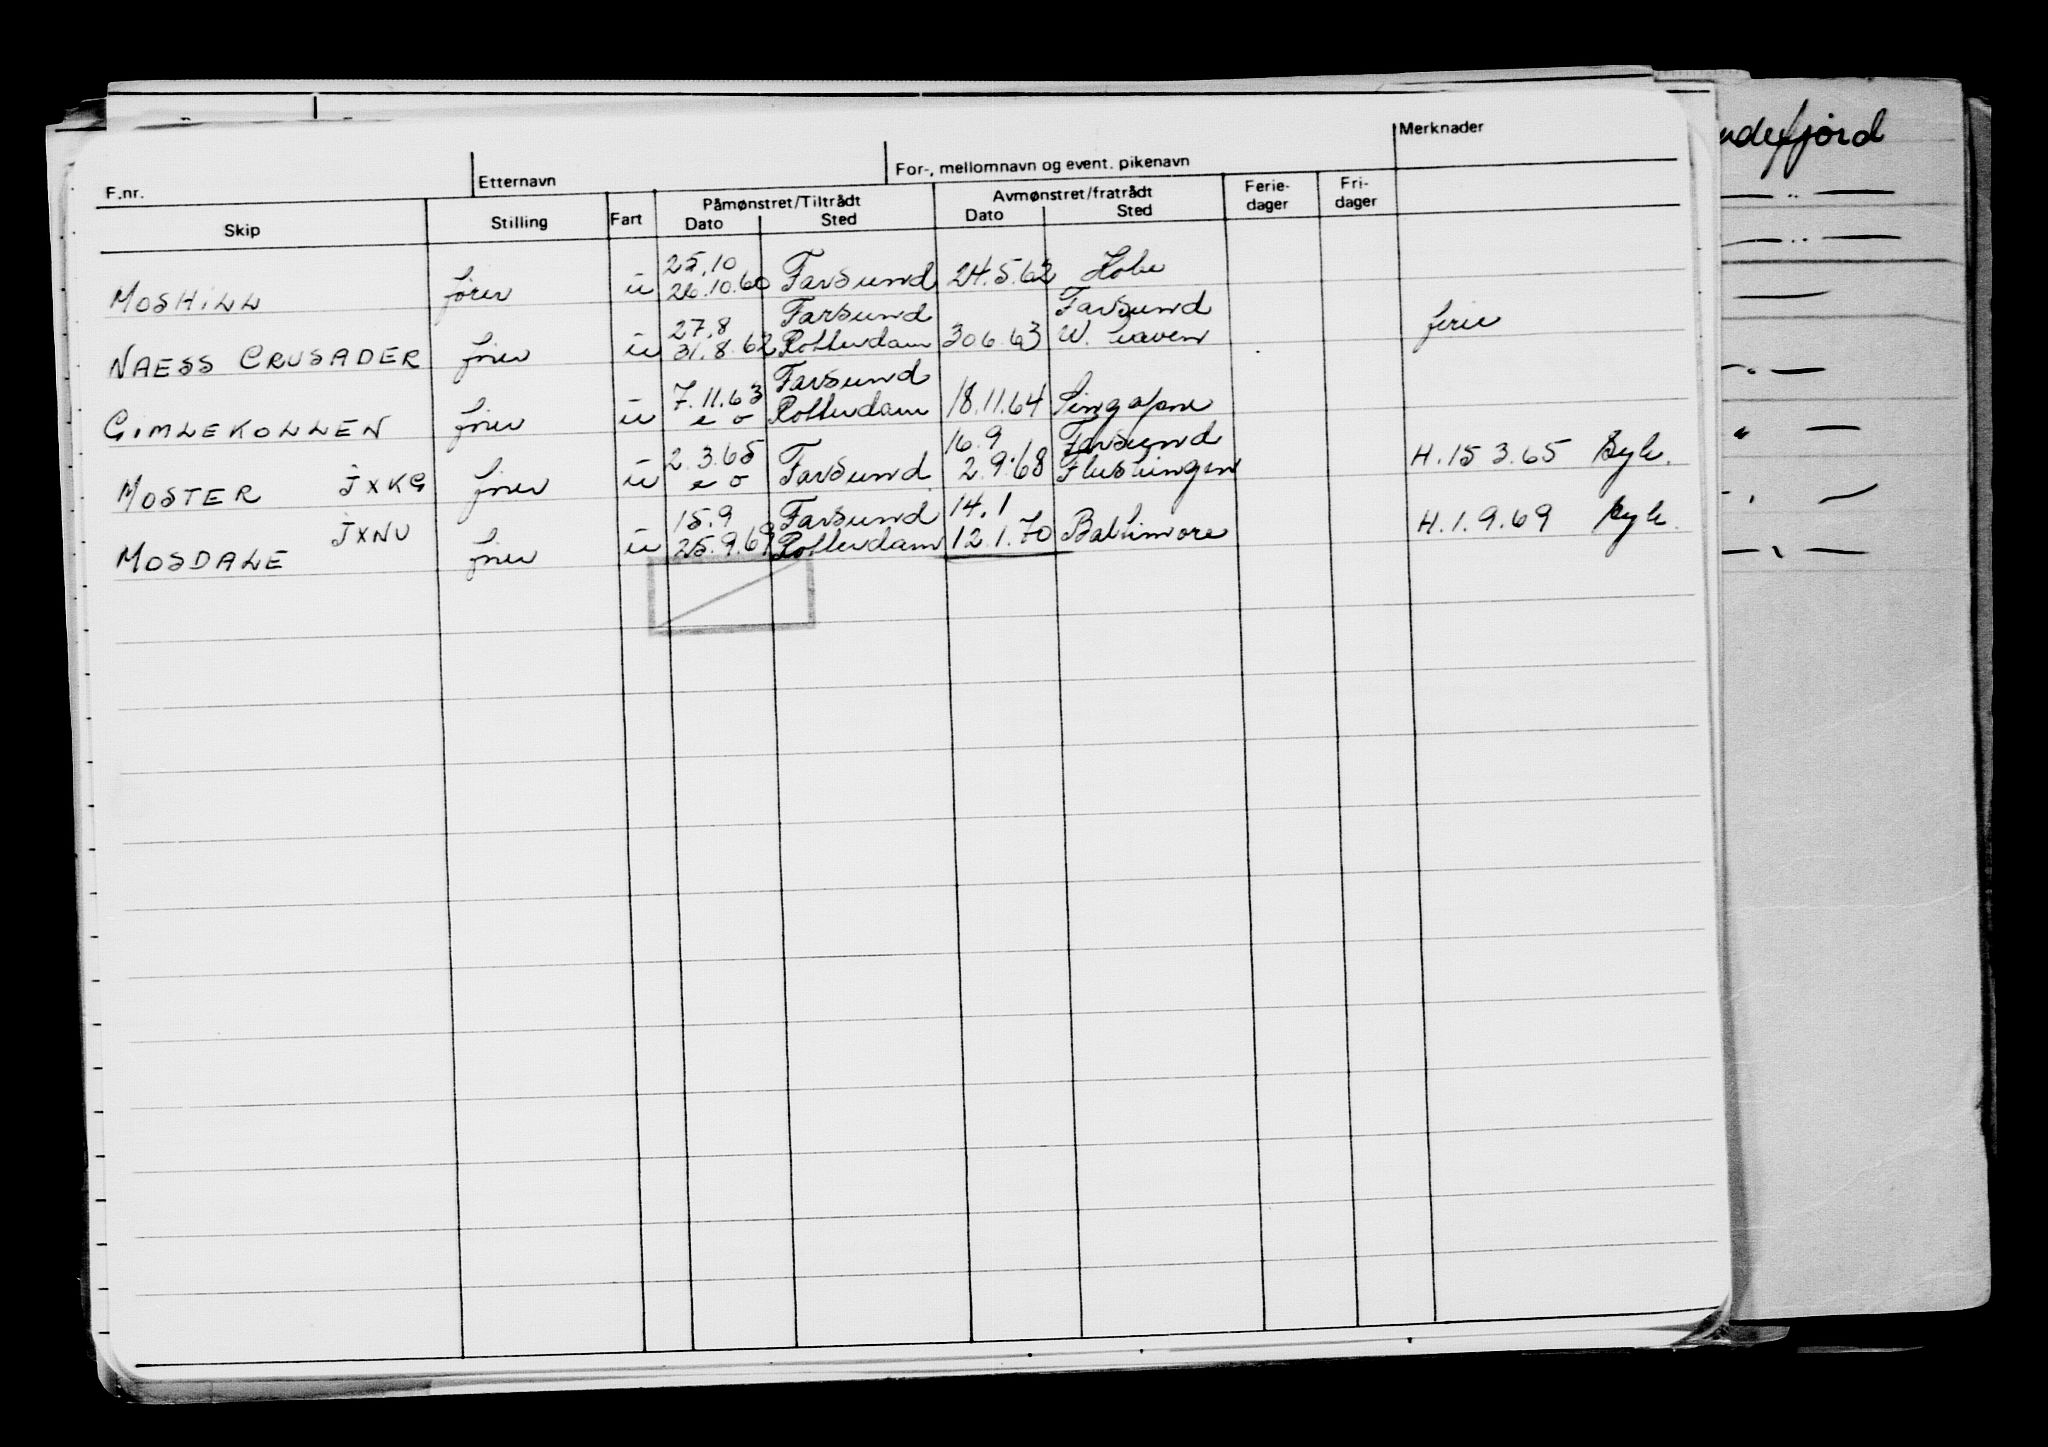 ndefjord
F.nr. Etternavn For-, mellomnavn og event. pikenavn Merknader
Skip Stilling Fart Påmønstret/Tiltrådt Dato Sted Avmønstret/fratrådt Dato Sted Ferie-dager Fri-dager
25.10
MOSHILL fører u 26.10.60 Farsund 24.5.62 Kobe
27.8 Farsund Farsund
NAESS CRUSADER fører u 31.8.62 Rotterdam 30 6.63 W. haven ferie
7.11.63 Farsund
GIMLEKOLLEN fører u e o Rotterdam 18.11.64 Singapore
2.3.65 16.9 Farsund
MOSTER JXKG fører u e o Farsund 2.9.68 Flushingen H.15 3.65 syk.
JXNU 15.9 Farsund 14.1
MOSDALE fører u 25.9.69 Rotterdam 12.1.70 Baltimore H.1.9.69 syk.